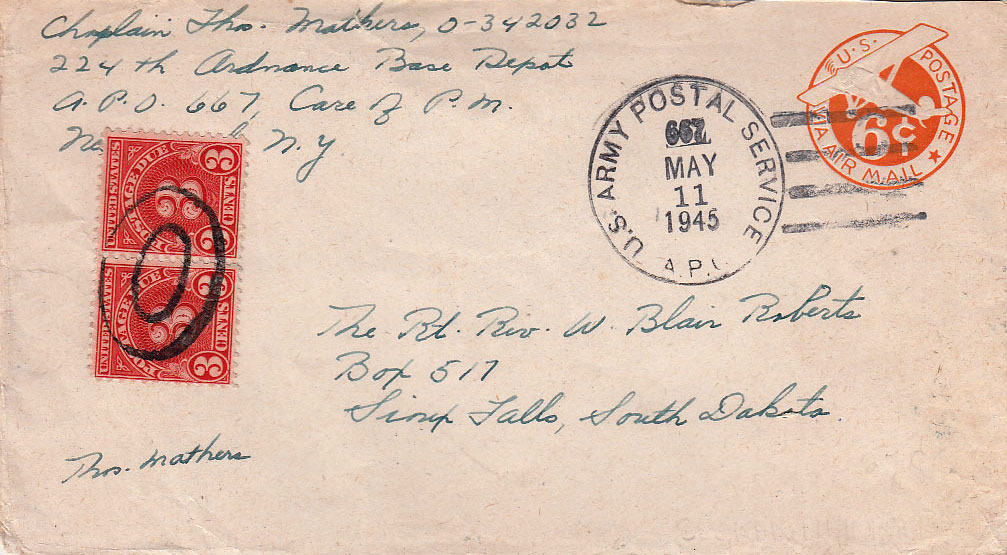 Chaplain Thos. Mathers, O-342032
224th Ordnance Base Depot
A.P.O. 667, Care of P.M.
N.Y.
U.S. POSTAGE
6¢
VIA AIR MAIL
U.S. ARMY POSTAL SERVICE
667
MAY
11
1945
A.P.
UNITED STATES
POSTAGE DUE
3 CENTS 3
UNITED STATES
POSTAGE DUE
3 CENTS 3
The Rt. Rev. W. Blair Roberts
Box 517
Sioux Falls, South Dakota.
Thos. Mathers